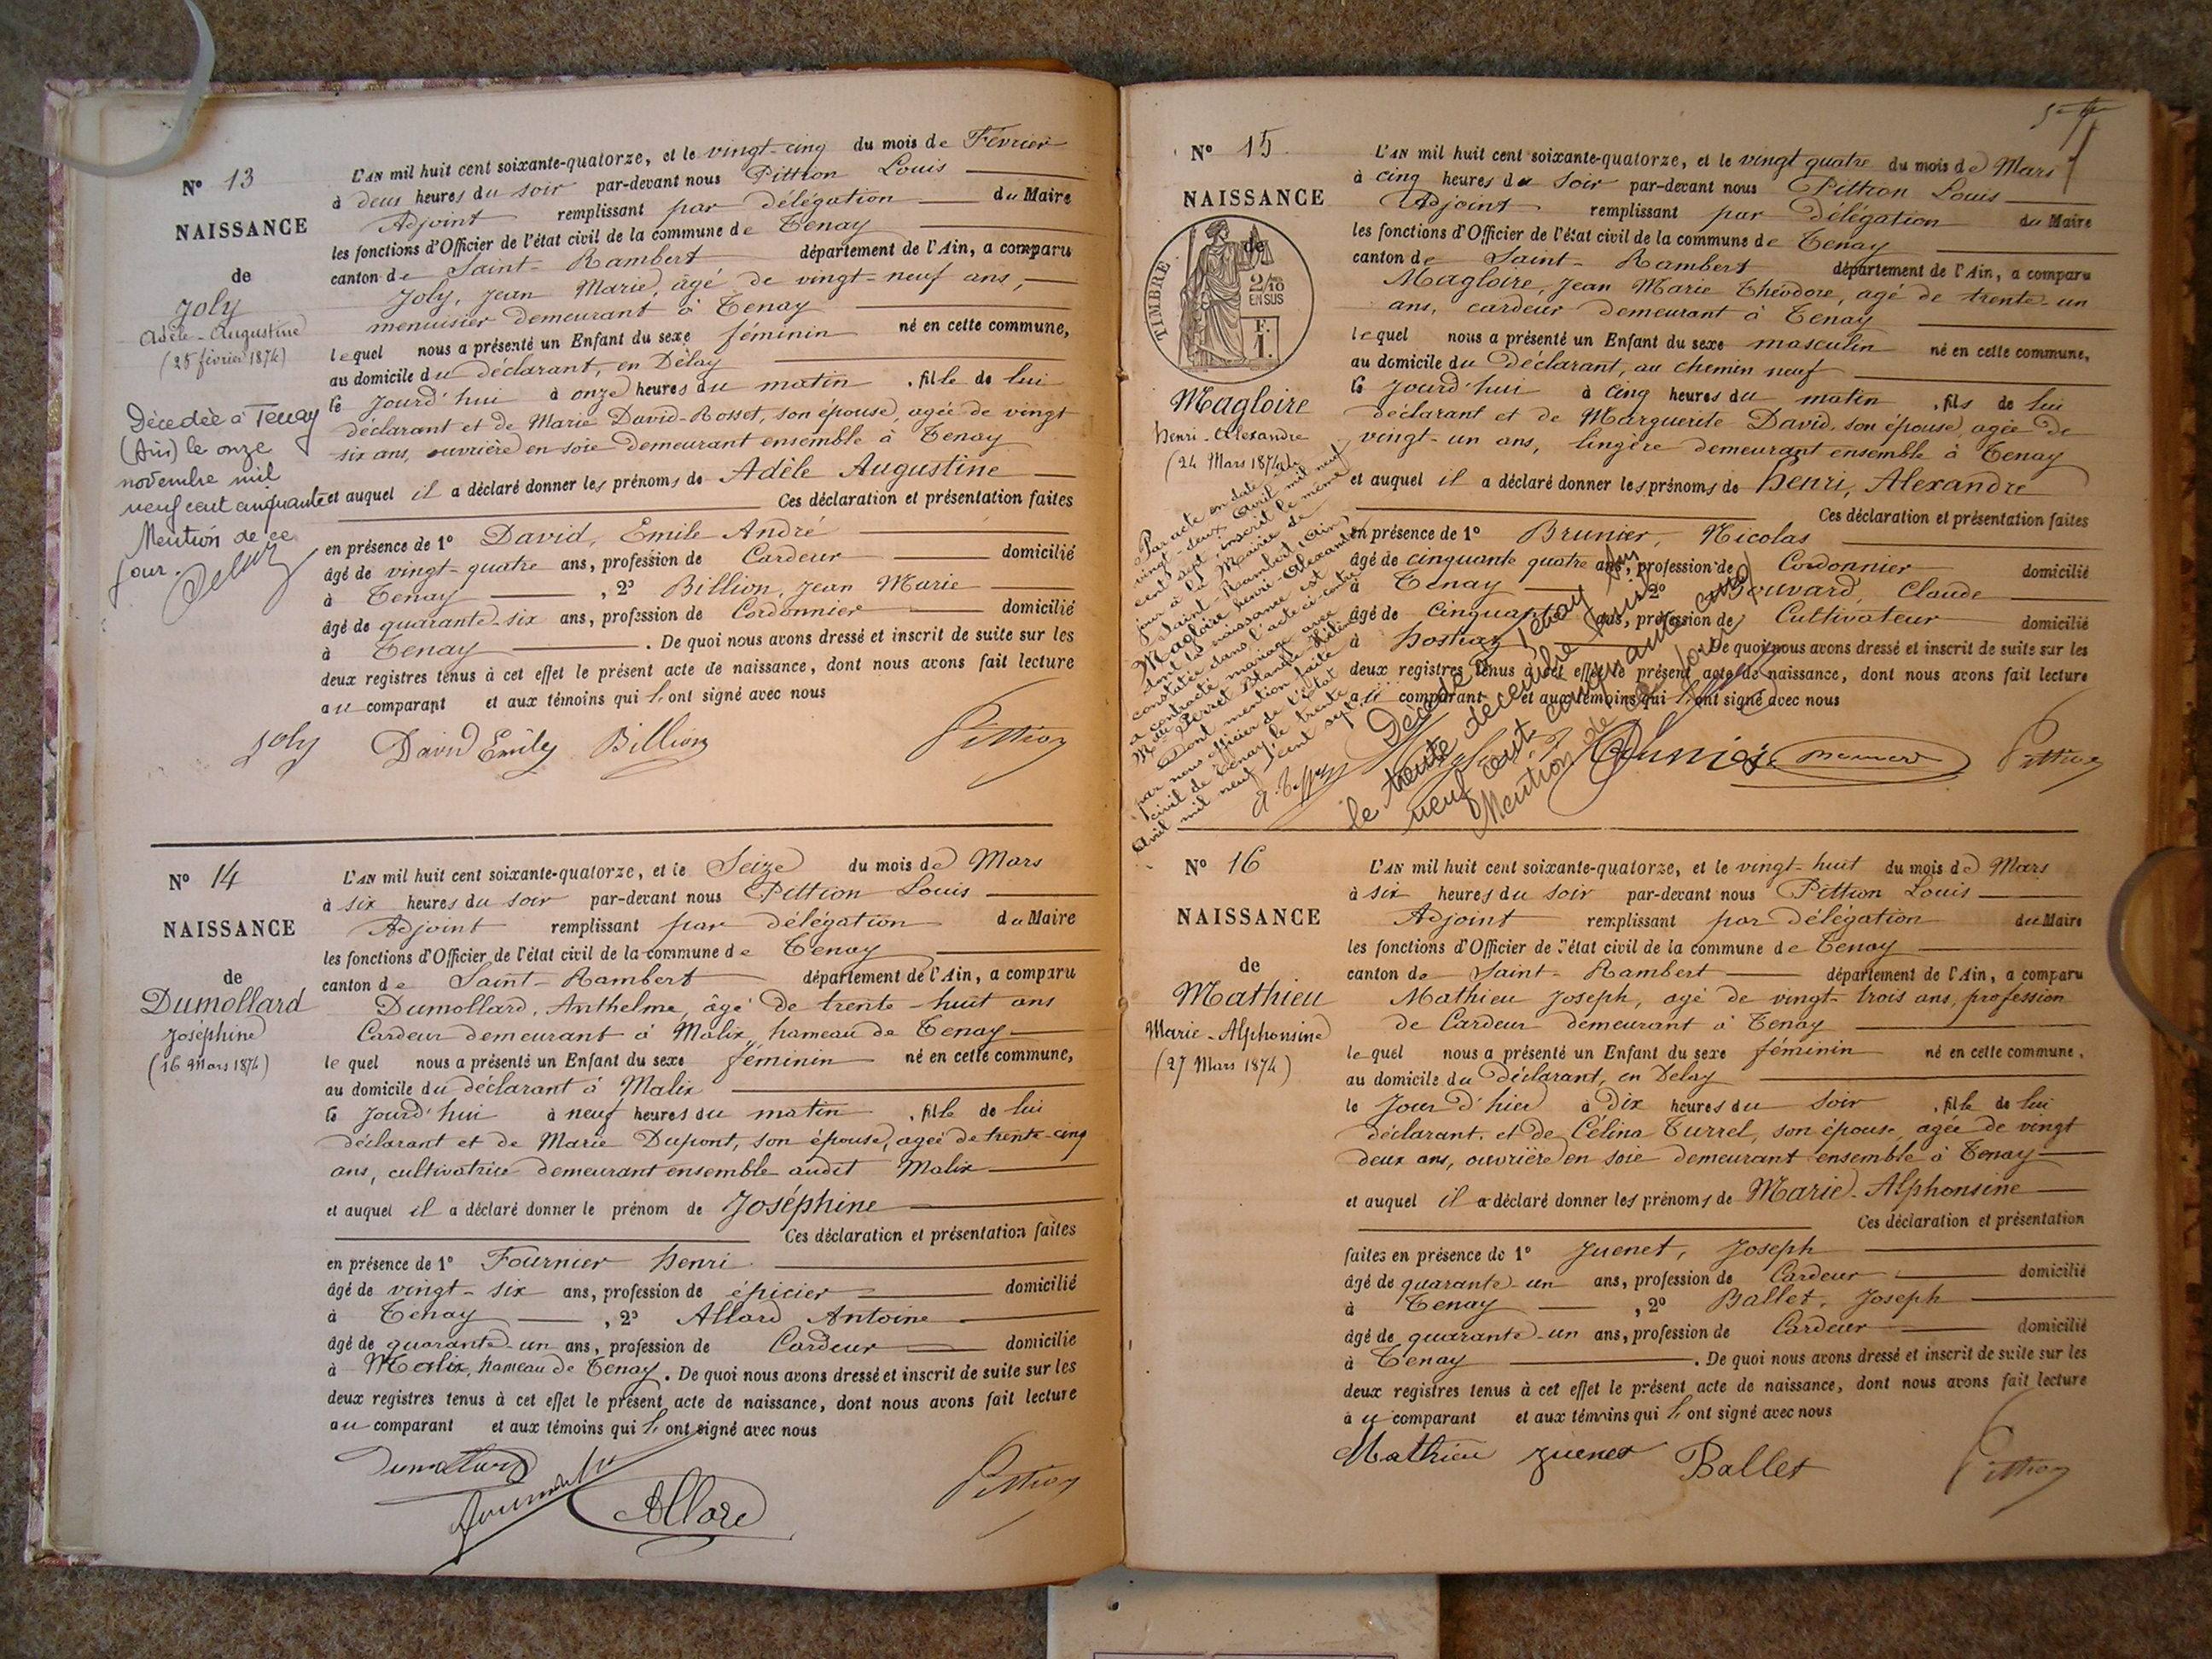 N° 13
NAISSANCE
de
Joly
Adèle-Augustine
(25 février 1874)
Décédée à Tenay
(Ain) le onze
novembre mil
neuf cent cinquante
Mention de ce
jour.
L'AN mil huit cent soixante-quatorze, et le vingt-cinq du mois de Février
à deux heures du soir par-devant nous Pittion Louis
Adjoint remplissant par délégation du Maire
les fonctions d'Officier de l'état civil de la commune de Tenay
canton de Saint-Rambert département de l'Ain, a comparu
Joly, Jean Marie, âgé de vingt-neuf ans,
menuisier demeurant à Tenay
lequel nous a présenté un Enfant du sexe féminin né en cette commune,
au domicile du déclarant, en Delay
le jourd'hui à onze heures du matin, fille de lui
déclarant et de Marie David-Rosset, son épouse, agée de vingt
six ans, ouvrière en soie demeurant ensemble à Tenay
et auquel il a déclaré donner les prénoms de Adèle Augustine
Ces déclaration et présentation faites
en présence de 1° David, Emile André
âgé de vingt-quatre ans, profession de Cardeur domicilié
à Tenay, 2° Billion, Jean Marie
âgé de quarante-six ans, profession de Cordonnier domicilié
à Tenay. De quoi nous avons dressé et inscrit de suite sur les
deux registres tenus à cet effet le présent acte de naissance, dont nous avons fait lecture
au comparant et aux témoins qui l'ont signé avec nous
Joly David Emile Billion Pittion
N° 14
NAISSANCE
de
Dumollard
Joséphine
(16 Mars 1874)
L'AN mil huit cent soixante-quatorze, et le Seize du mois de Mars
à six heures du soir par-devant nous Pittion Louis
Adjoint remplissant par délégation du Maire
les fonctions d'Officier de l'état civil de la commune de Tenay
canton de Saint-Rambert département de l'Ain, a comparu
Dumollard, Anthelme, âgé de trente-huit ans
Cardeur demeurant à Malix, hameau de Tenay
lequel nous a présenté un Enfant du sexe féminin né en cette commune,
au domicile du déclarant à Malix
le jourd'hui à neuf heures du matin, fille de lui
déclarant et de Marie Dupont, son épouse, agée de trente-cinq
ans, cultivatrice demeurant ensemble audit Malix
et auquel il a déclaré donner le prénom de Joséphine
Ces déclaration et présentation faites
en présence de 1° Fournier Henri
âgé de vingt-six ans, profession de épicier domicilié
à Tenay, 2° Allard Antoine
âgé de quarante-un ans, profession de Cardeur domicilié
à Malix, hameau de Tenay. De quoi nous avons dressé et inscrit de suite sur les
deux registres tenus à cet effet le présent acte de naissance, dont nous avons fait lecture
au comparant et aux témoins qui l'ont signé avec nous
Dumollard Allard Pittion
N° 15
NAISSANCE
de
TIMBRE
2/10
EN SUS
F.
1.
Magloire
Henri-Alexandre
(24 Mars 1874)
Par acte en date du
vingt-deux Avril mil neuf
cent sept, inscrit le même
jour à la Mairie de
Saint-Rambert (Ain)
Magloire Henri-Alexandre
dont la naissance est
constatée dans l'acte ci-contre
a contracté mariage avec
Melle Perret Blanche
Dont mention faite
par nous officier de l'état
civil de Tenay, le trente
Avril mil neuf cent sept.
L'AN mil huit cent soixante-quatorze, et le vingt quatre du mois de Mars
à cinq heures du soir par-devant nous Pittion Louis
Adjoint remplissant par délégation du Maire
les fonctions d'Officier de l'état civil de la commune de Tenay
canton de Saint-Rambert département de l'Ain, a comparu
Magloire, Jean Marie Théodore, agé de trente-un
ans, cardeur demeurant à Tenay
lequel nous a présenté un Enfant du sexe masculin né en cette commune,
au domicile du déclarant, au chemin neuf
le jourd'hui à cinq heures du matin, fils de lui
déclarant et de Marguerite David, son épouse, agée de
vingt-un ans, lingère demeurant ensemble à Tenay
et auquel il a déclaré donner les prénoms de Henri, Alexandre
Ces déclaration et présentation faites
en présence de 1° Brunier, Nicolas
âgé de cinquante quatre ans, profession de Cordonnier domicilié
à Tenay 2° Bouvard, Claude
âgé de cinquante ans, profession de Cultivateur domicilié
à Hostiaz De quoi nous avons dressé et inscrit de suite sur les
deux registres tenus à cet effet le présent acte de naissance, dont nous avons fait lecture
au comparant et aux témoins qui l'ont signé avec nous
Décédé à Tenay Ain
le trente décembre
neuf cent cinquante cinq
Mention de ce jour
Brunier Pittion
N° 16
NAISSANCE
de
Mathieu
Marie-Alphonsine
(27 Mars 1874)
L'AN mil huit cent soixante-quatorze, et le vingt-huit du mois de Mars
à six heures du soir par-devant nous Pittion Louis
Adjoint remplissant par délégation du Maire
les fonctions d'Officier de l'état civil de la commune de Tenay
canton de Saint-Rambert département de l'Ain, a comparu
Mathieu Joseph, agé de vingt-trois ans, profession
de Cardeur demeurant à Tenay
lequel nous a présenté un Enfant du sexe féminin né en cette commune,
au domicile du déclarant, en Delay
le jour d'hier à dix heures du soir, fille de lui
déclarant et de Célina Turrel, son épouse, agée de vingt
deux ans, ouvrière en soie demeurant ensemble à Tenay
et auquel il a déclaré donner les prénoms de Marie-Alphonsine
Ces déclaration et présentation
faites en présence de 1° Juenet, Joseph
âgé de quarante-un ans, profession de Cardeur domicilié
à Tenay, 2° Ballet, Joseph
âgé de quarante-un ans, profession de Cardeur domicilié
à Tenay. De quoi nous avons dressé et inscrit de suite sur les
deux registres tenus à cet effet le présent acte de naissance, dont nous avons fait lecture
au comparant et aux témoins qui l'ont signé avec nous
Mathieu Juenet Ballet Pittion